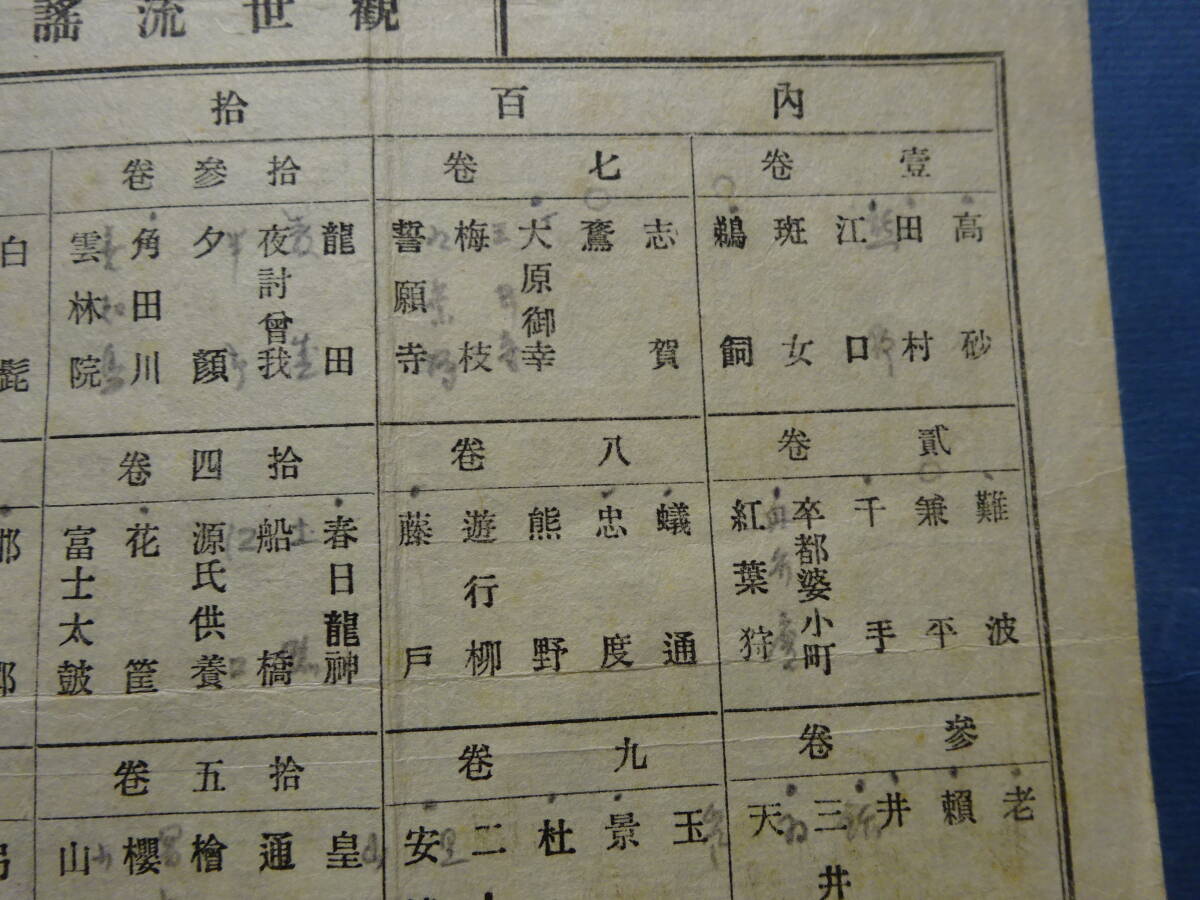 觀世流謠
內百拾
壹卷
高砂
田村
江口
斑女
鵜飼
貳卷
難波
兼平
千手
卒都婆小町
紅葉狩
參卷
老
賴
井
三井
天
七卷
志賀
鵞
大原御幸
梅枝
誓願寺
八卷
蟻通
忠度
熊野
遊行柳
藤戸
九卷
玉
景
杜
二
安
拾參卷
龍田
夜討曾我
夕顏
角田川
雲林院
拾四卷
春日龍神
船橋
源氏供養
花筐
富士太鼓
拾五卷
皇
通
檜
櫻
山
白髭